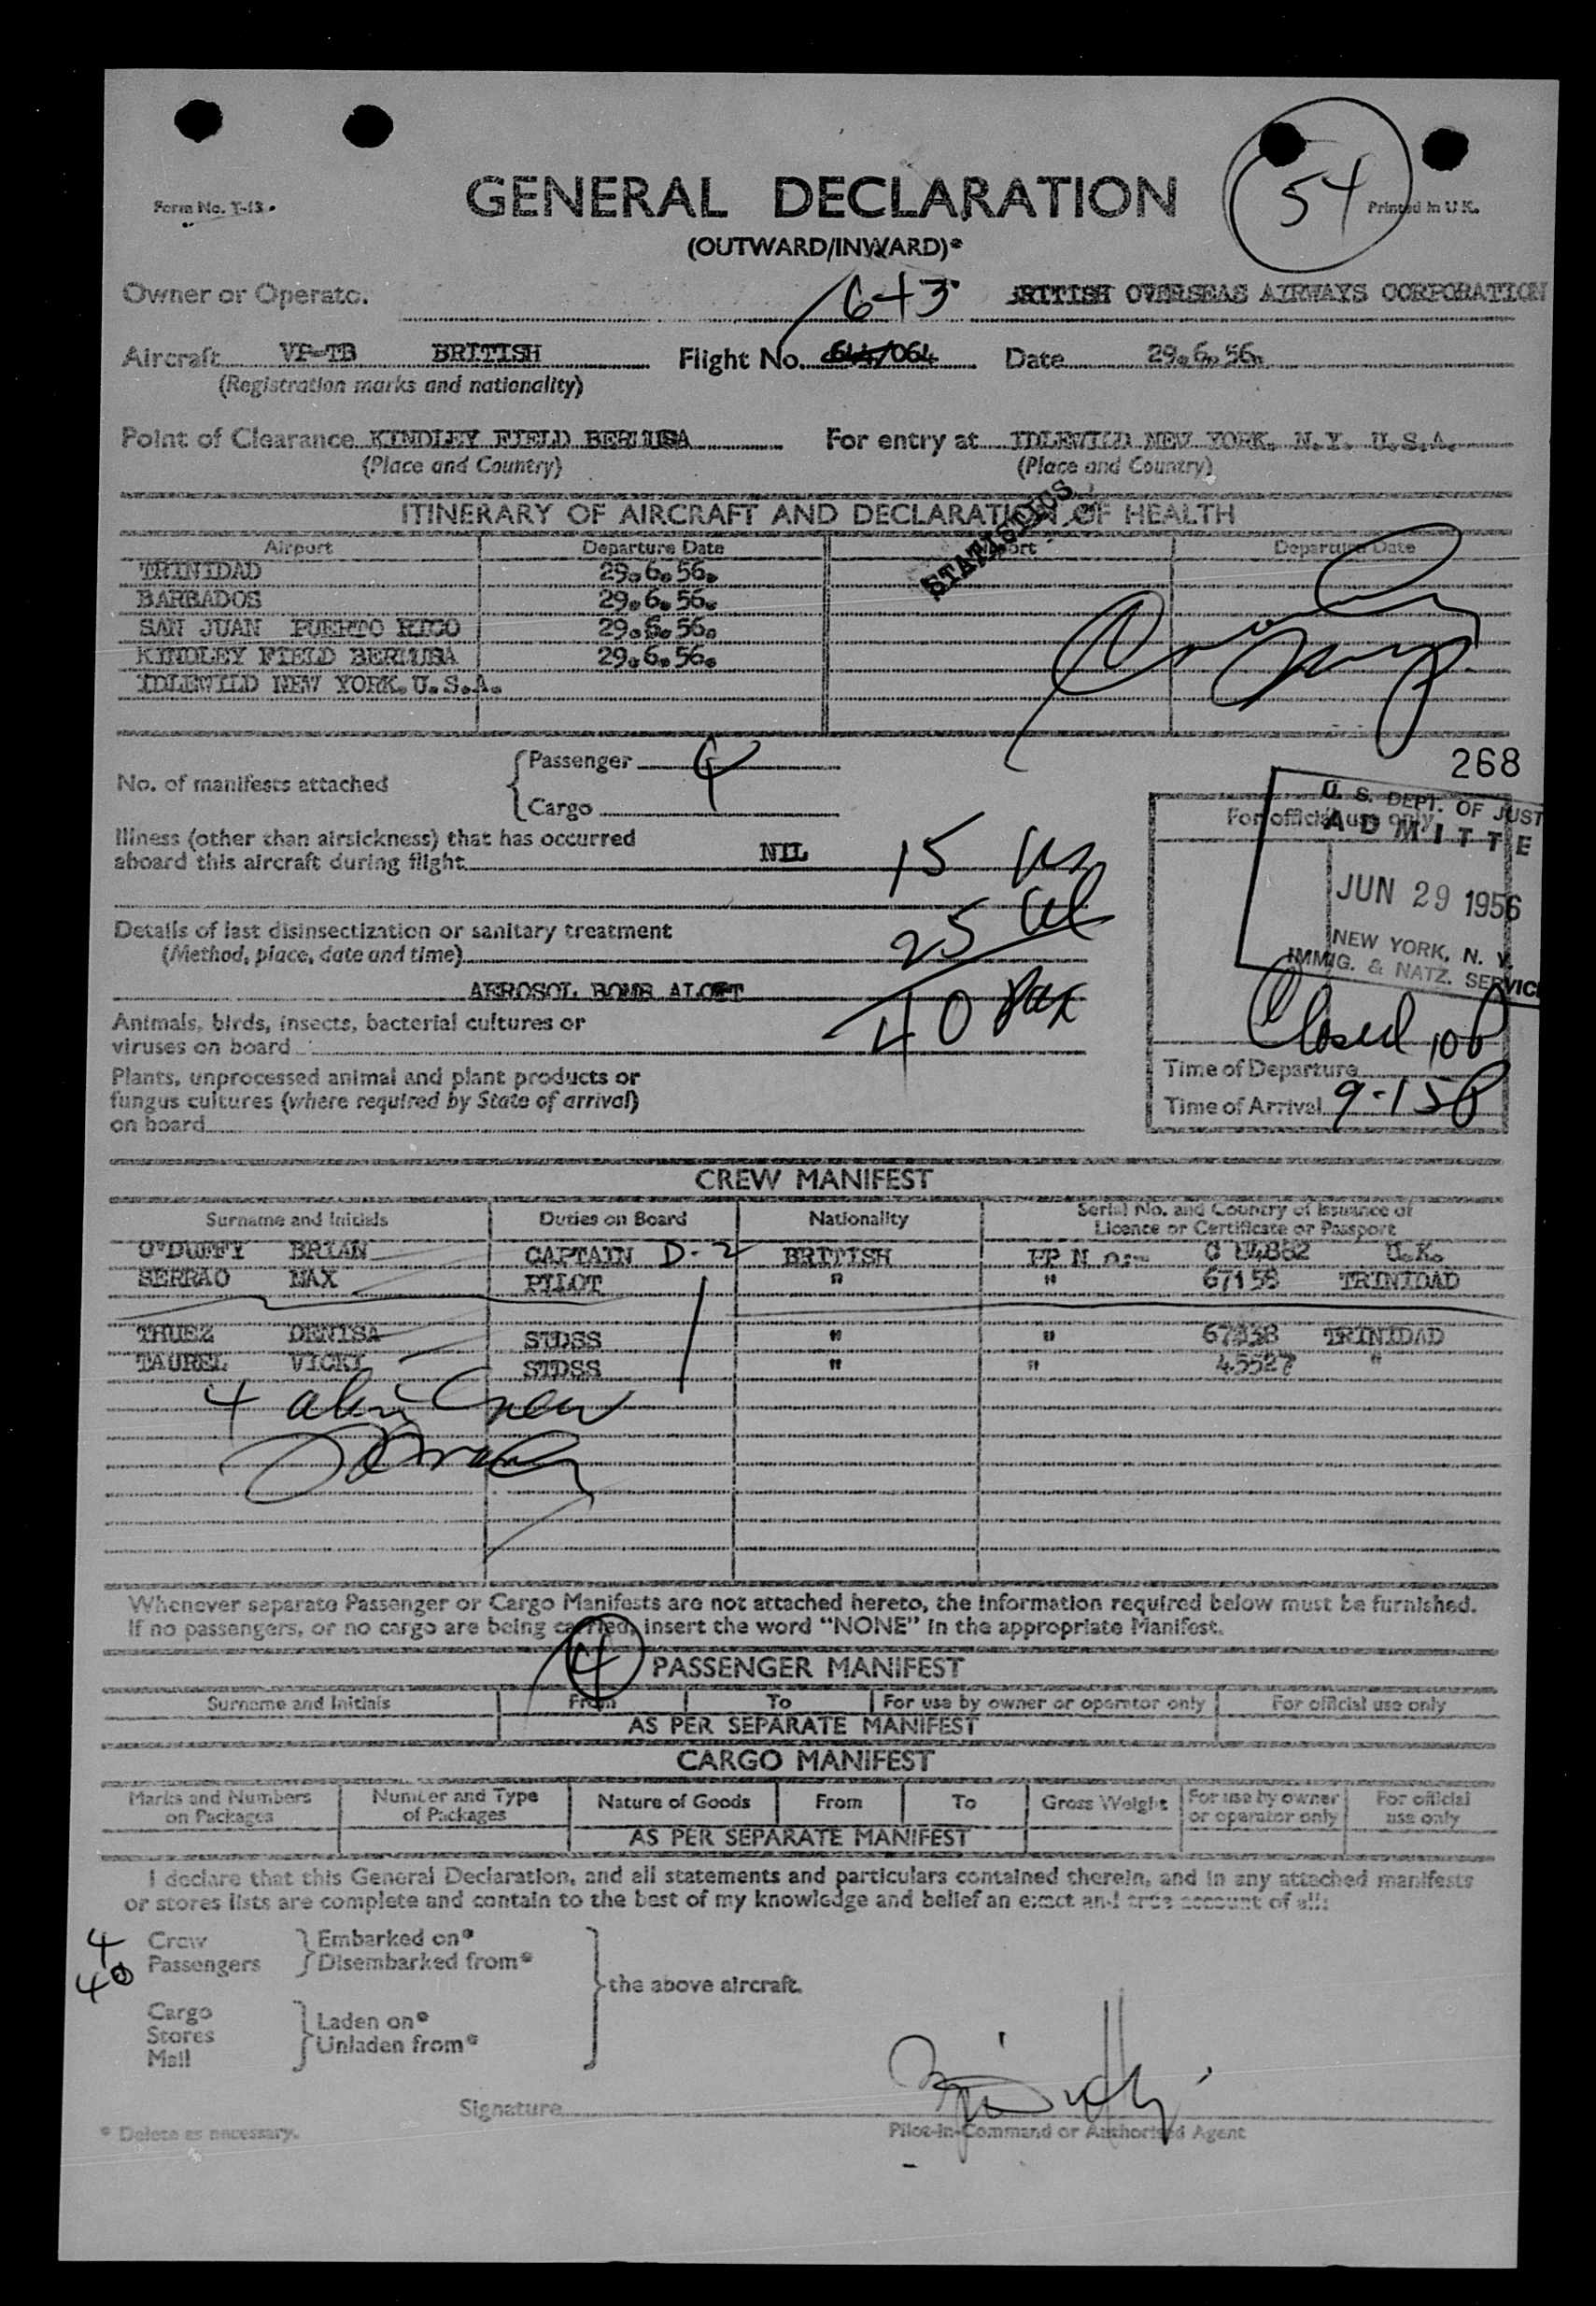 54
Form No. T-13.
GENERAL DECLARATION
Printed in U K.
(OUTWARD/INWARD)*
643
Owner or Operato. BRITISH OVERSEAS AIRWAYS CORPORATION
Aircraft VP-TB BRITISH Flight No. 644/064 Date 29.6.56.
(Registration marks and nationality)
Point of Clearance KINDLEY FIELD BERMUDA For entry at IDLEWILD NEW YORK. N.Y. U.S.A.
(Place and Country) (Place and Country)
ITINERARY OF AIRCRAFT AND DECLARATION OF HEALTH
STATISTICS
Airport Departure Date Airport Departure Date
TRINIDAD 29.6.56.
BARBADOS 29.6.56.
SAN JUAN PUERTO RICO 29.6.56.
KINDLEY FIELD BERMUDA 29.6.56.
IDLEWILD NEW YORK.U.S.A.
No. of manifests attached Passenger 4
Cargo
268
U. S. DEPT. OF JUST
For official use only
ADMITTE
JUN 29 1956
NEW YORK, N. Y.
IMMIG. & NATZ. SERVIC
Illness (other than airsickness) that has occurred
aboard this aircraft during flight NIL
15 us
25
40 Pax
Details of last disinsectization or sanitary treatment
(Method, place, date and time)
AEROSOL BOMB ALOFT
Animals, birds, insects, bacterial cultures or
viruses on board
Closed 10P
Plants, unprocessed animal and plant products or
fungus cultures (where required by State of arrival)
on board
Time of Departure
Time of Arrival 9-15P
CREW MANIFEST
Surname and Initials Duties on Board Nationality Serial No. and Country of Issuance of
Licence or Certificate or Passport
O'DUFFY BRIAN CAPTAIN D-2 BRITISH PP N o:- U.K.
SERRAO MAX PILOT " " 67158 TRINIDAD
THUEZ DENISA STDSS " " TRINIDAD
TAUREL VICKI STDSS " " 45527 "
4 alien Crew
Whenever separate Passenger or Cargo Manifests are not attached hereto, the information required below must be furnished.
If no passengers, or no cargo are being carried, insert the word "NONE" in the appropriate Manifest.
4
PASSENGER MANIFEST
Surname and Initials From To For use by owner or operator only For official use only
AS PER SEPARATE MANIFEST
CARGO MANIFEST
Marks and Numbers on Packages Number and Type of Packages Nature of Goods From To Gross Weight For use by owner or operator only For official use only
AS PER SEPARATE MANIFEST
I declare that this General Declaration, and all statements and particulars contained therein, and in any attached manifests
or stores lists are complete and contain to the best of my knowledge and belief an exact and true account of all:
4 Crew Embarked on*
40 Passengers Disembarked from*
the above aircraft.
Cargo Laden on*
Stores Unladen from*
Mail
Signature
* Delete as necessary. Pilot-in-Command or Authorised Agent